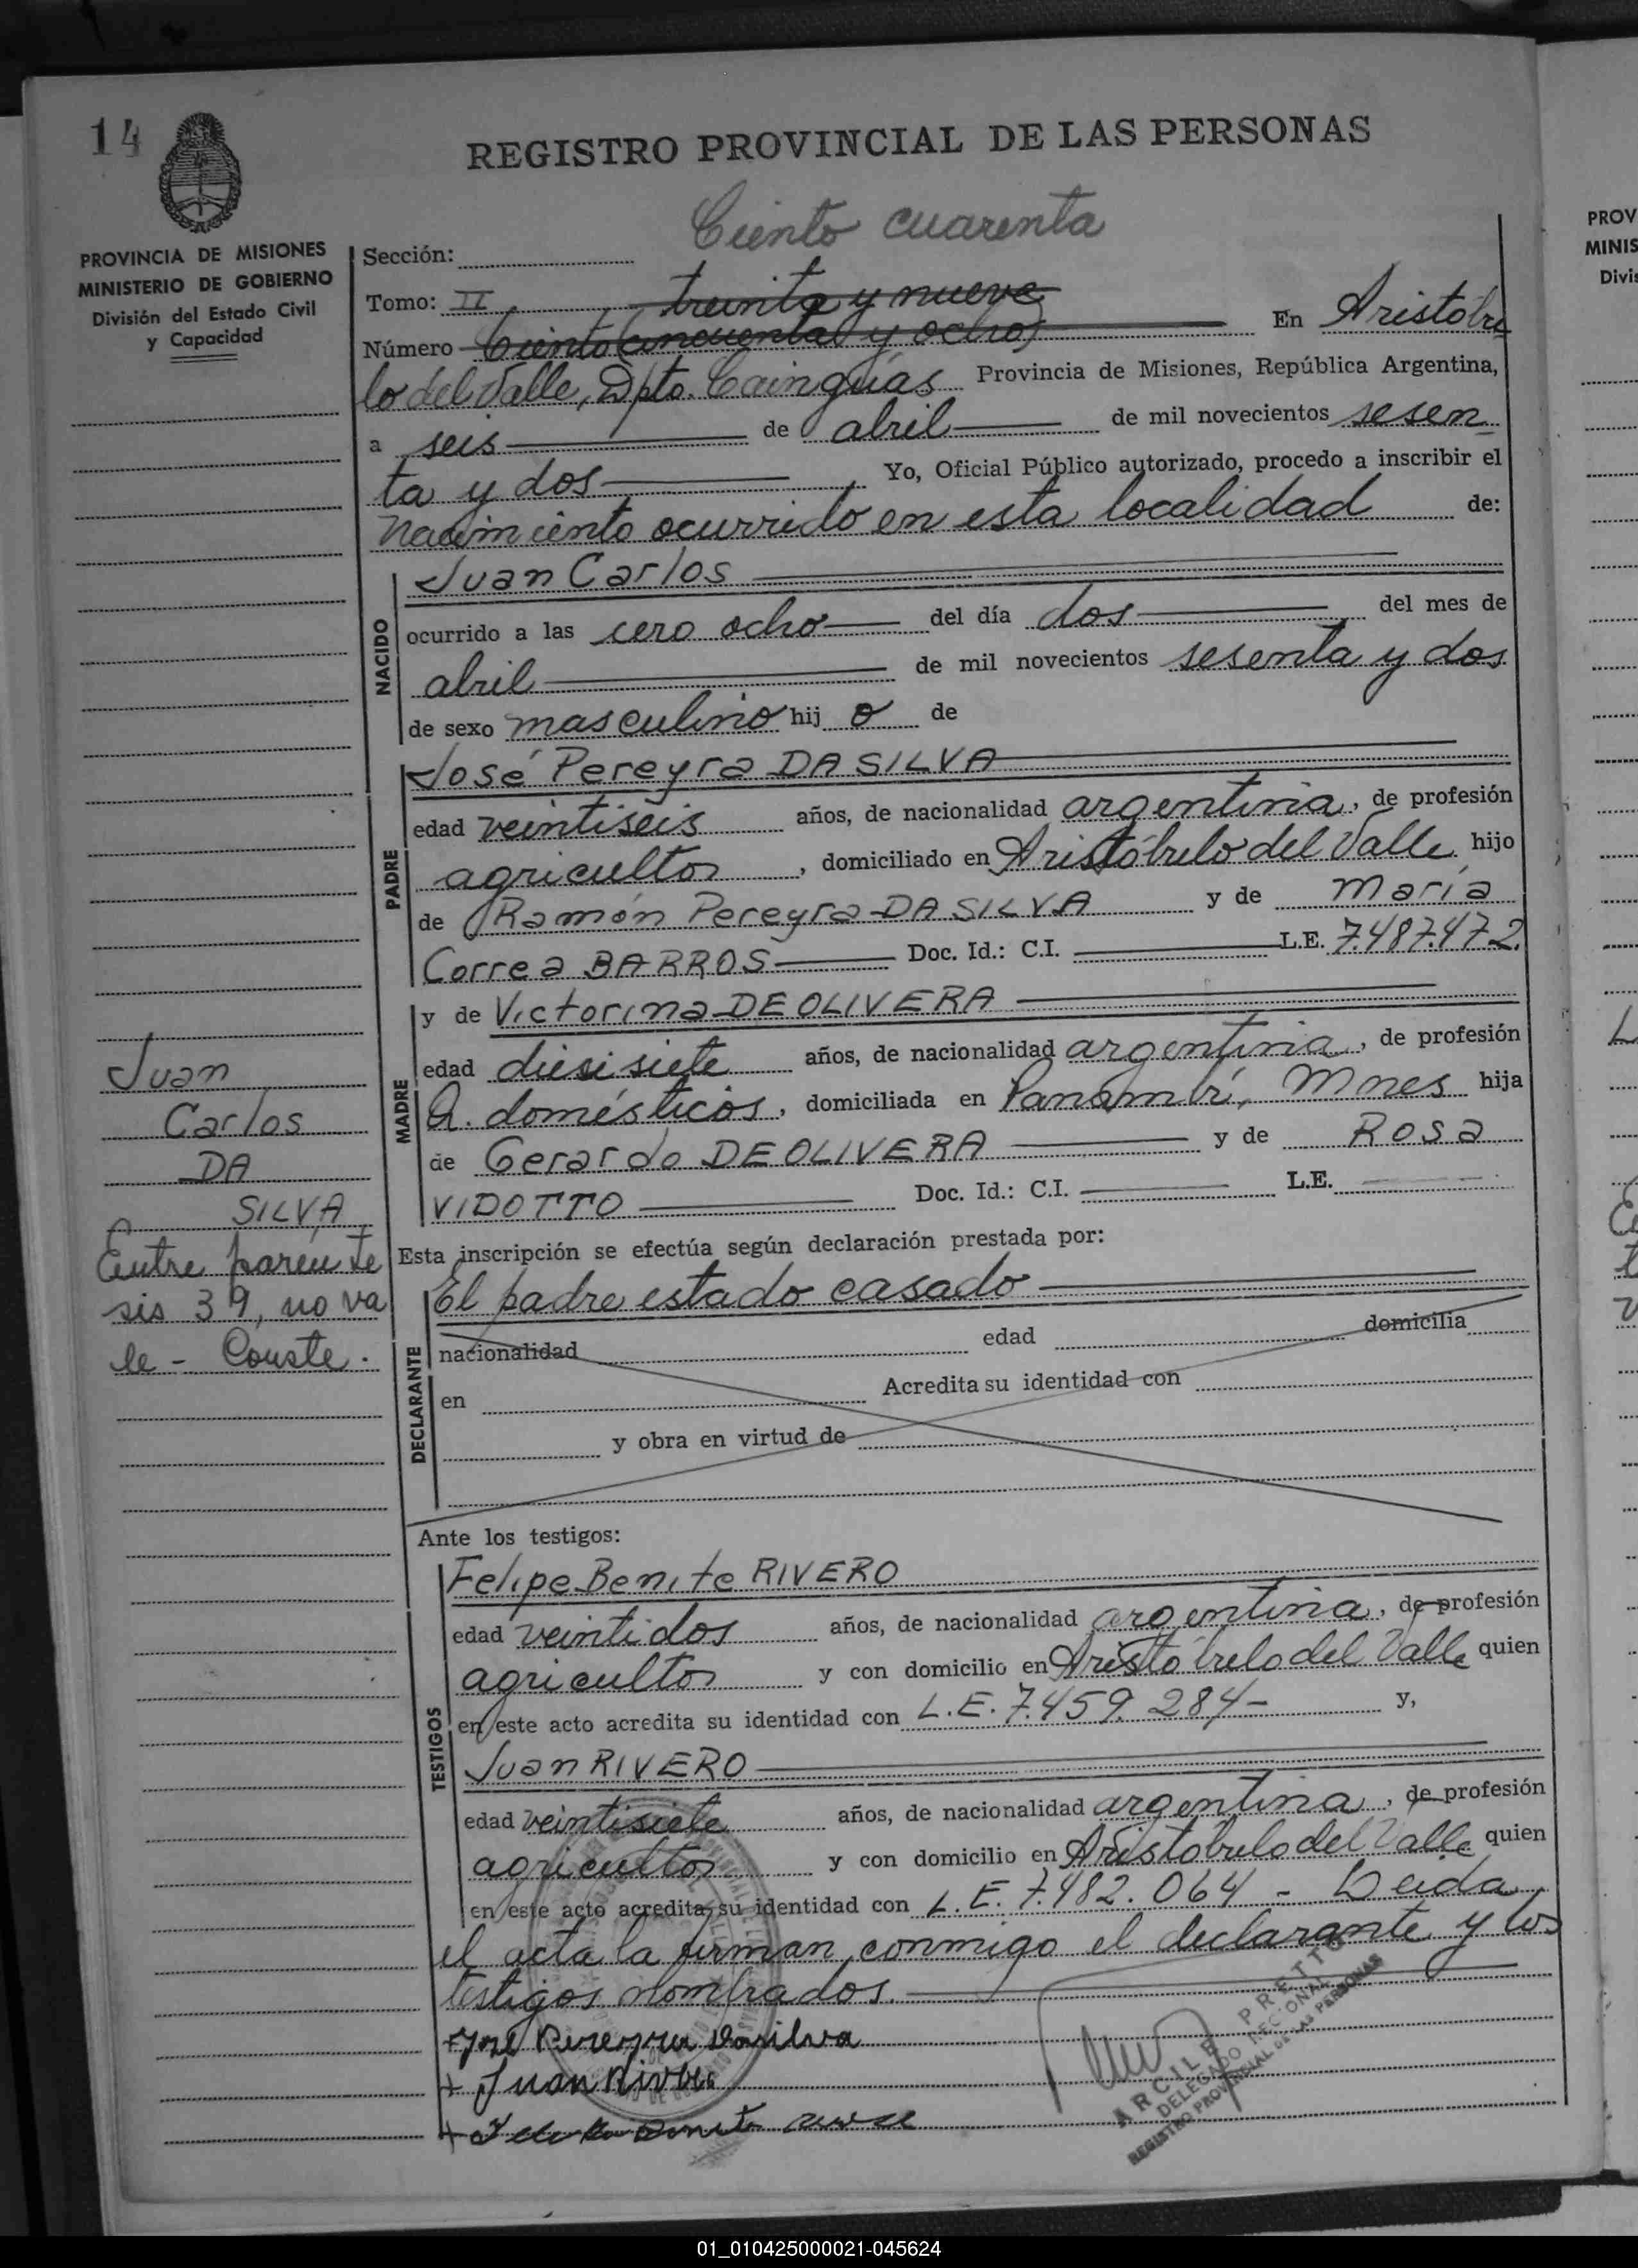 14
REGISTRO PROVINCIAL DE LAS PERSONAS
PROVINCIA DE MISIONES
MINISTERIO DE GOBIERNO
División del Estado Civil
y Capacidad
Ciento cuarenta
Sección:
Tomo: II treinta y nueve
Número Ciento (cincuenta y ocho) En Aristóbu
lo del Valle, Dpto. Cainguás Provincia de Misiones, República Argentina,
a seis de abril de mil novecientos sesen
ta y dos Yo, Oficial Público autorizado, procedo a inscribir el
nacimiento ocurrido en esta localidad de:
NACIDO
Juan Carlos
ocurrido a las cero ocho del día dos del mes de
abril de mil novecientos sesenta y dos
de sexo masculino hij o de
PADRE
José Pereyra DA SILVA
edad veintiseis años, de nacionalidad argentina, de profesión
agricultor, domiciliado en Aristóbulo del Valle hijo
de Ramón Pereyra DA SILVA y de María
Correa BARROS Doc. Id.: C.I. L.E. 7.487.472.
MADRE
y de Victorina DE OLIVERA
edad diesisiete años, de nacionalidad argentina, de profesión
Q. domésticos, domiciliada en Panambí, Mnes hija
de Gerardo DE OLIVERA y de Rosa
VIDOTTO Doc. Id.: C.I. L.E.
Juan
Carlos
DA
SILVA
Entre parénte
sis 39, no va
le - Conste.
Esta inscripción se efectúa según declaración prestada por:
DECLARANTE
El padre estado casado
nacionalidad edad domicilia
en Acredita su identidad con
y obra en virtud de
Ante los testigos:
TESTIGOS
Felipe Benite RIVERO
edad veintidos años, de nacionalidad argentina, de profesión
agricultor y con domicilio en Aristóbulo del Valle quien
en este acto acredita su identidad con L.E. 7.459.284- y,
Juan RIVERO
edad veintisiete años, de nacionalidad argentina, de profesión
agricultor y con domicilio en Aristóbulo del Valle quien
en este acto acredita su identidad con L.E. 7.482.064 - Leida
el acta la firman conmigo el declarante y los
testigos nombrados.
+ José Pereyra Dasilva
+ Juan Rivero
ARCILE PRETTO
DELEGADO SECCIONAL
REGISTRO PROVINCIAL DE LAS PERSONAS
PROV
MINIS
Divis
01_010425000021-045624